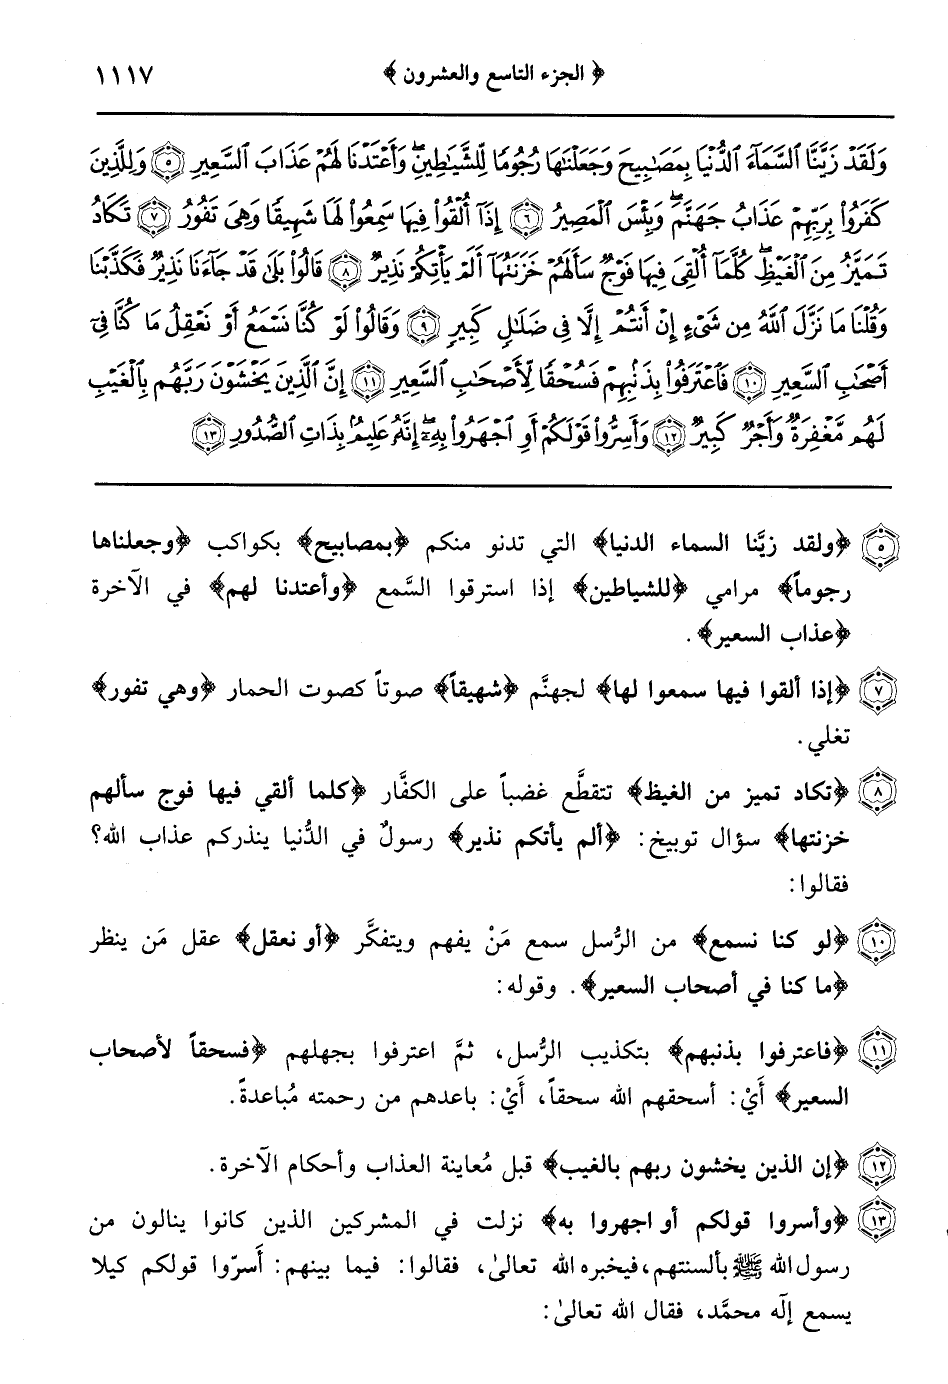 ﴿ الجزء التاسع والعشرون ﴾ ١١١٧
وَلَقَدْ زَيَّنَّا ٱلسَّمَآءَ ٱلدُّنْيَا بِمَصَٰبِيحَ وَجَعَلْنَٰهَا رُجُومًا لِّلشَّيَٰطِينِ ۖ وَأَعْتَدْنَا لَهُمْ عَذَابَ ٱلسَّعِيرِ ٥ وَلِلَّذِينَ
كَفَرُوا۟ بِرَبِّهِمْ عَذَابُ جَهَنَّمَ ۖ وَبِئْسَ ٱلْمَصِيرُ ٦ إِذَآ أُلْقُوا۟ فِيهَا سَمِعُوا۟ لَهَا شَهِيقًا وَهِىَ تَفُورُ ٧ تَكَادُ
تَمَيَّزُ مِنَ ٱلْغَيْظِ ۖ كُلَّمَآ أُلْقِىَ فِيهَا فَوْجٌ سَأَلَهُمْ خَزَنَتُهَآ أَلَمْ يَأْتِكُمْ نَذِيرٌ ٨ قَالُوا۟ بَلَىٰ قَدْ جَآءَنَا نَذِيرٌ فَكَذَّبْنَا
وَقُلْنَا مَا نَزَّلَ ٱللَّهُ مِن شَىْءٍ إِنْ أَنتُمْ إِلَّا فِى ضَلَٰلٍ كَبِيرٍ ٩ وَقَالُوا۟ لَوْ كُنَّا نَسْمَعُ أَوْ نَعْقِلُ مَا كُنَّا فِىٓ
أَصْحَٰبِ ٱلسَّعِيرِ ١٠ فَٱعْتَرَفُوا۟ بِذَنۢبِهِمْ فَسُحْقًا لِّأَصْحَٰبِ ٱلسَّعِيرِ ١١ إِنَّ ٱلَّذِينَ يَخْشَوْنَ رَبَّهُم بِٱلْغَيْبِ
لَهُم مَّغْفِرَةٌ وَأَجْرٌ كَبِيرٌ ١٢ وَأَسِرُّوا۟ قَوْلَكُمْ أَوِ ٱجْهَرُوا۟ بِهِۦٓ ۖ إِنَّهُۥ عَلِيمٌۢ بِذَاتِ ٱلصُّدُورِ ١٣
٥ ﴿ولقد زيَّنا السماء الدنيا﴾ التي تدنو منكم ﴿بمصابيح﴾ بكواكب ﴿وجعلناها
رجوماً﴾ مرامي ﴿للشياطين﴾ إذا استرقوا السَّمع ﴿وأعتدنا لهم﴾ في الآخرة
﴿عذاب السعير﴾.
٧ ﴿إذا ألقوا فيها سمعوا لها﴾ لجهنَّم ﴿شهيقاً﴾ صوتاً كصوت الحمار ﴿وهي تفور﴾
تغلي.
٨ ﴿تكاد تميز من الغيظ﴾ تتقطَّع غضباً على الكفَّار ﴿كلما ألقي فيها فوج سألهم
خزنتها﴾ سؤال توبيخ: ﴿ألم يأتكم نذير﴾ رسولٌ في الدُّنيا ينذركم عذاب الله؟
فقالوا:
١٠ ﴿لو كنا نسمع﴾ من الرُّسل سمع مَنْ يفهم ويتفكَّر ﴿أو نعقل﴾ عقل مَن ينظر
﴿ما كنا في أصحاب السعير﴾. وقوله:
١١ ﴿فاعترفوا بذنبهم﴾ بتكذيب الرُّسل، ثمَّ اعترفوا بجهلهم ﴿فسحقاً لأصحاب
السعير﴾ أَيْ: أسحقهم الله سحقاً، أَيْ: باعدهم من رحمته مُباعدةً.
١٢ ﴿إن الذين يخشون ربهم بالغيب﴾ قبل مُعاينة العذاب وأحكام الآخرة.
١٣ ﴿وأسروا قولكم أو اجهروا به﴾ نزلت في المشركين الذين كانوا ينالون من
رسول الله ﷺ بألسنتهم، فيخبره الله تعالىٰ، فقالوا: فيما بينهم: أَسرّوا قولكم كيلا
يسمع إلٰه محمَّد، فقال الله تعالىٰ: